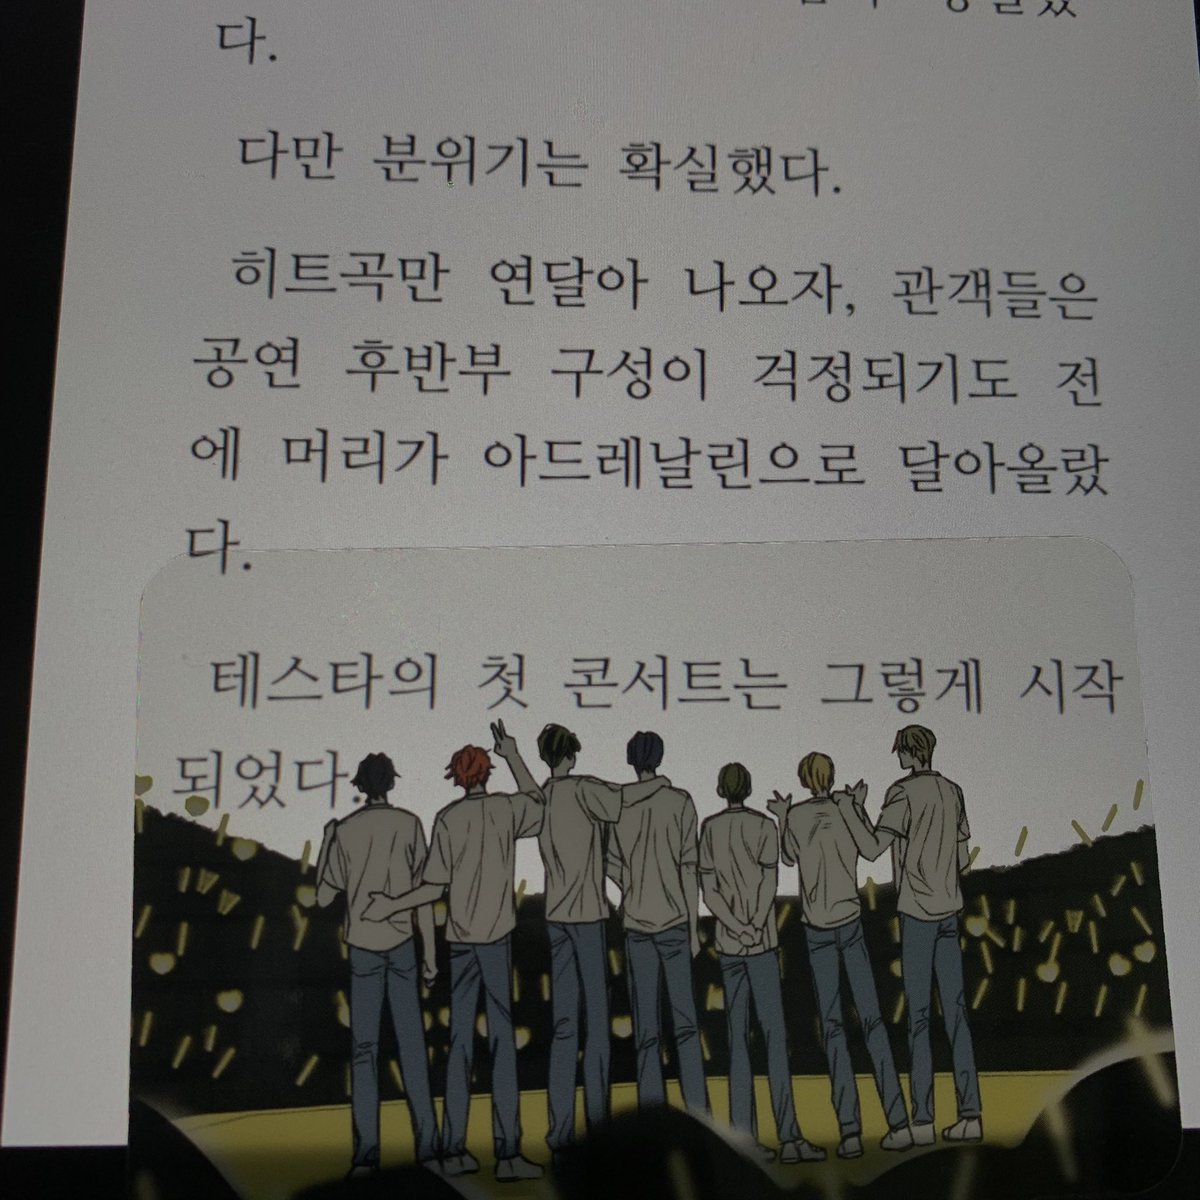 다.
다만 분위기는 확실했다.
히트곡만 연달아 나오자, 관객들은
공연 후반부 구성이 걱정되기도 전
에 머리가 아드레날린으로 달아올랐
다.
테스타의 첫 콘서트는 그렇게 시작
되었다.